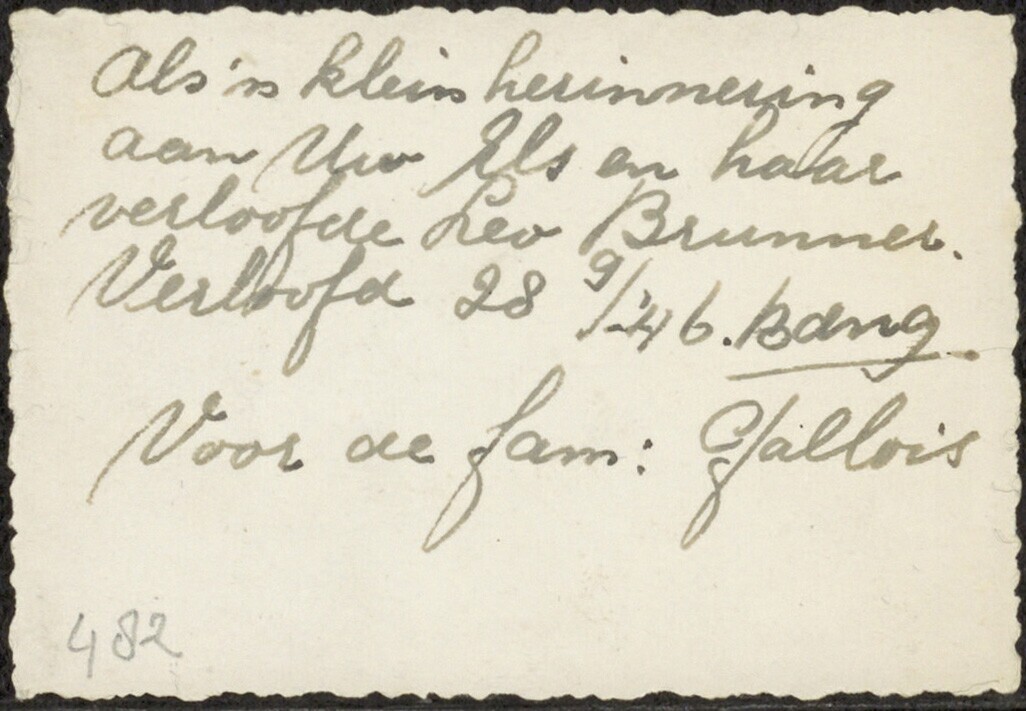 Als 'n klein herinnering
aan Uw Els en haar
verloofde Leo Brunner.
Verloofd 28 9/'46. Bdng.
Voor de fam: Gallois
482